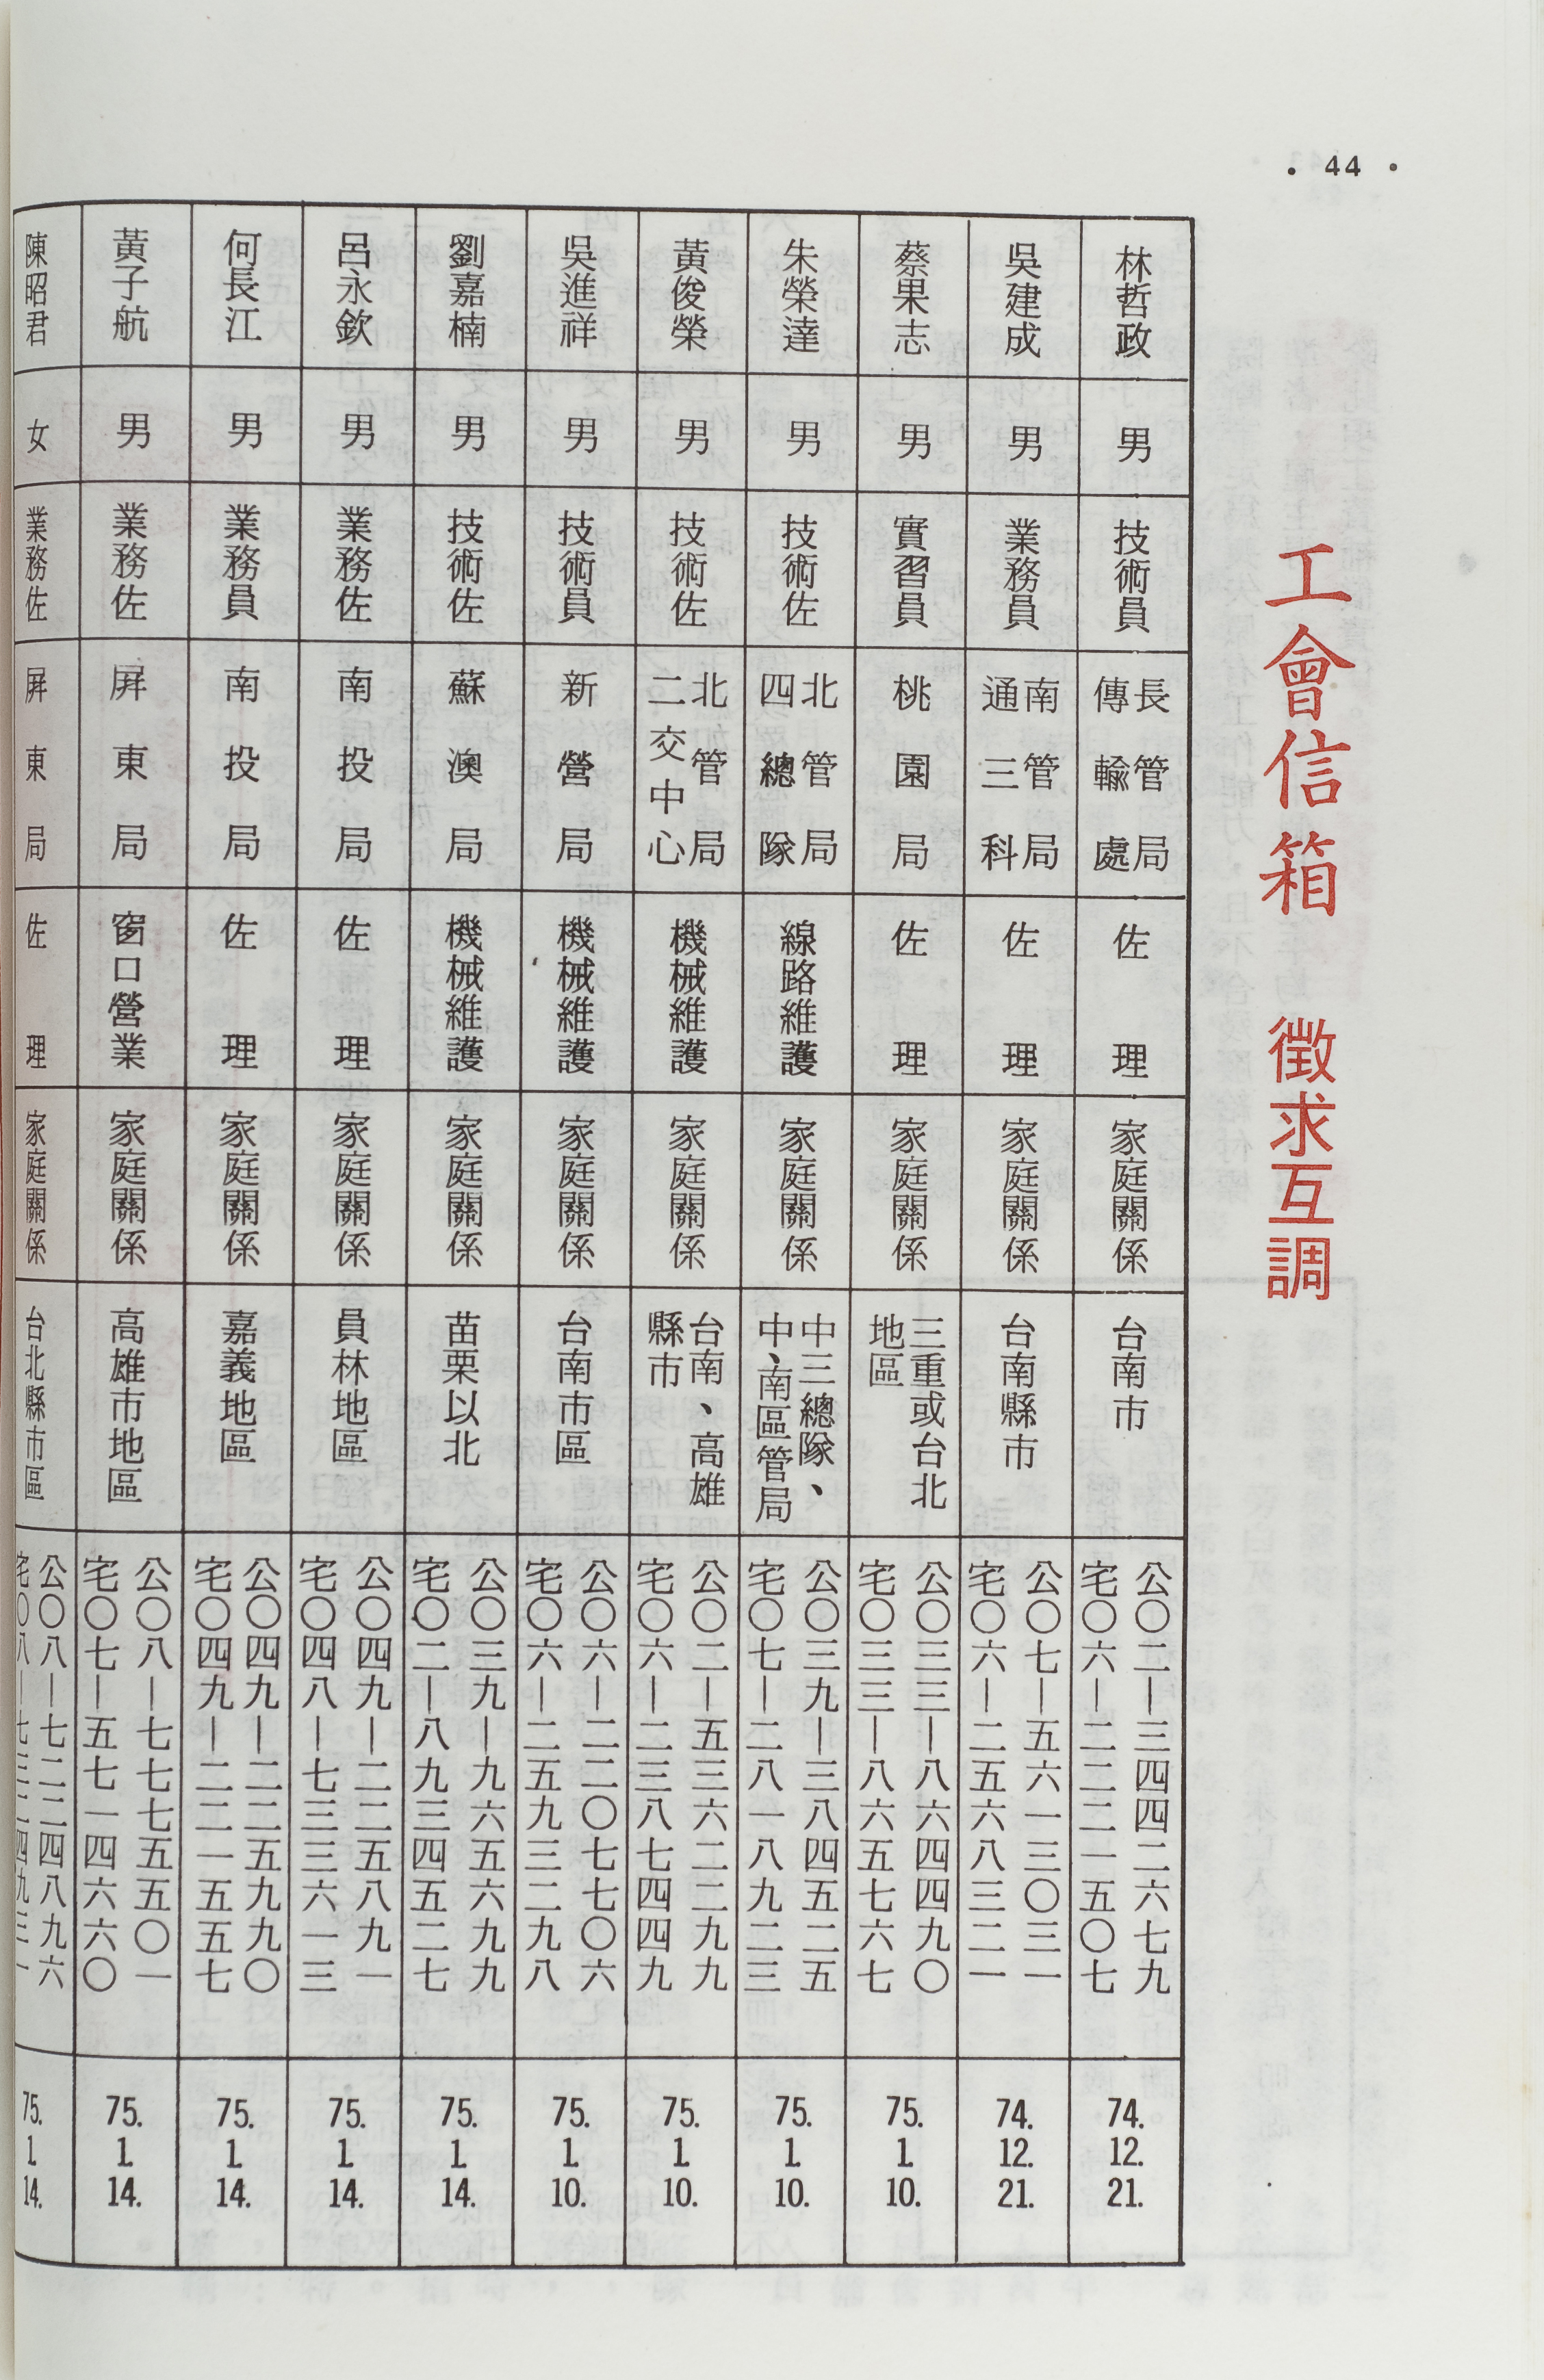 • 44 •
工會信箱 徵求互調
林哲政
男
技術員
長管局
傳輸處
佐理
家庭關係
台南市
公〇二—三四四二六七九
宅〇六—二二二一五〇七
74.12.21.
吳建成
男
業務員
南管局
通三科
佐理
家庭關係
台南縣市
公〇七—五六一三〇三一
宅〇六—二五六八三二一
74.12.21.
蔡果志
男
實習員
桃園局
佐理
家庭關係
三重或台北
地區
公〇三三—八六四四九〇
宅〇三三—八六五七六七
75.1.10.
朱榮達
男
技術佐
北管局
四總隊
線路維護
家庭關係
中三總隊、
中、南區管局
公〇三九—三八四五二五
宅〇七—二八一八九二三
75.1.10.
黃俊榮
男
技術佐
北管局
二交中心
機械維護
家庭關係
台南、高雄
縣市
公〇二—五三六二二九九
宅〇六—二三八七四四九
75.1.10.
吳進祥
男
技術員
新營局
機械維護
家庭關係
台南市區
公〇六—二二〇七七〇六
宅〇六—二五九三二九八
75.1.10.
劉嘉楠
男
技術佐
蘇澳局
機械維護
家庭關係
苗栗以北
公〇三九—九六五六九九
宅〇二—八九三四五二七
75.1.14.
呂永欽
男
業務佐
南投局
佐理
家庭關係
員林地區
公〇四九—二二五八九一
宅〇四八—七三三六一三
75.1.14.
何長江
男
業務員
南投局
佐理
家庭關係
嘉義地區
公〇四九—二二五九九〇
宅〇四九—二二一五五七
75.1.14.
黃子航
男
業務佐
屏東局
窗口營業
家庭關係
高雄市地區
公〇八—七七七五五〇一
宅〇七—五七一四六六〇
75.1.14.
陳昭君
女
業務佐
屏東局
佐理
家庭關係
台北縣市區
公〇八—七二二四八九六
宅〇八—七三二四九三一
75.1.14.